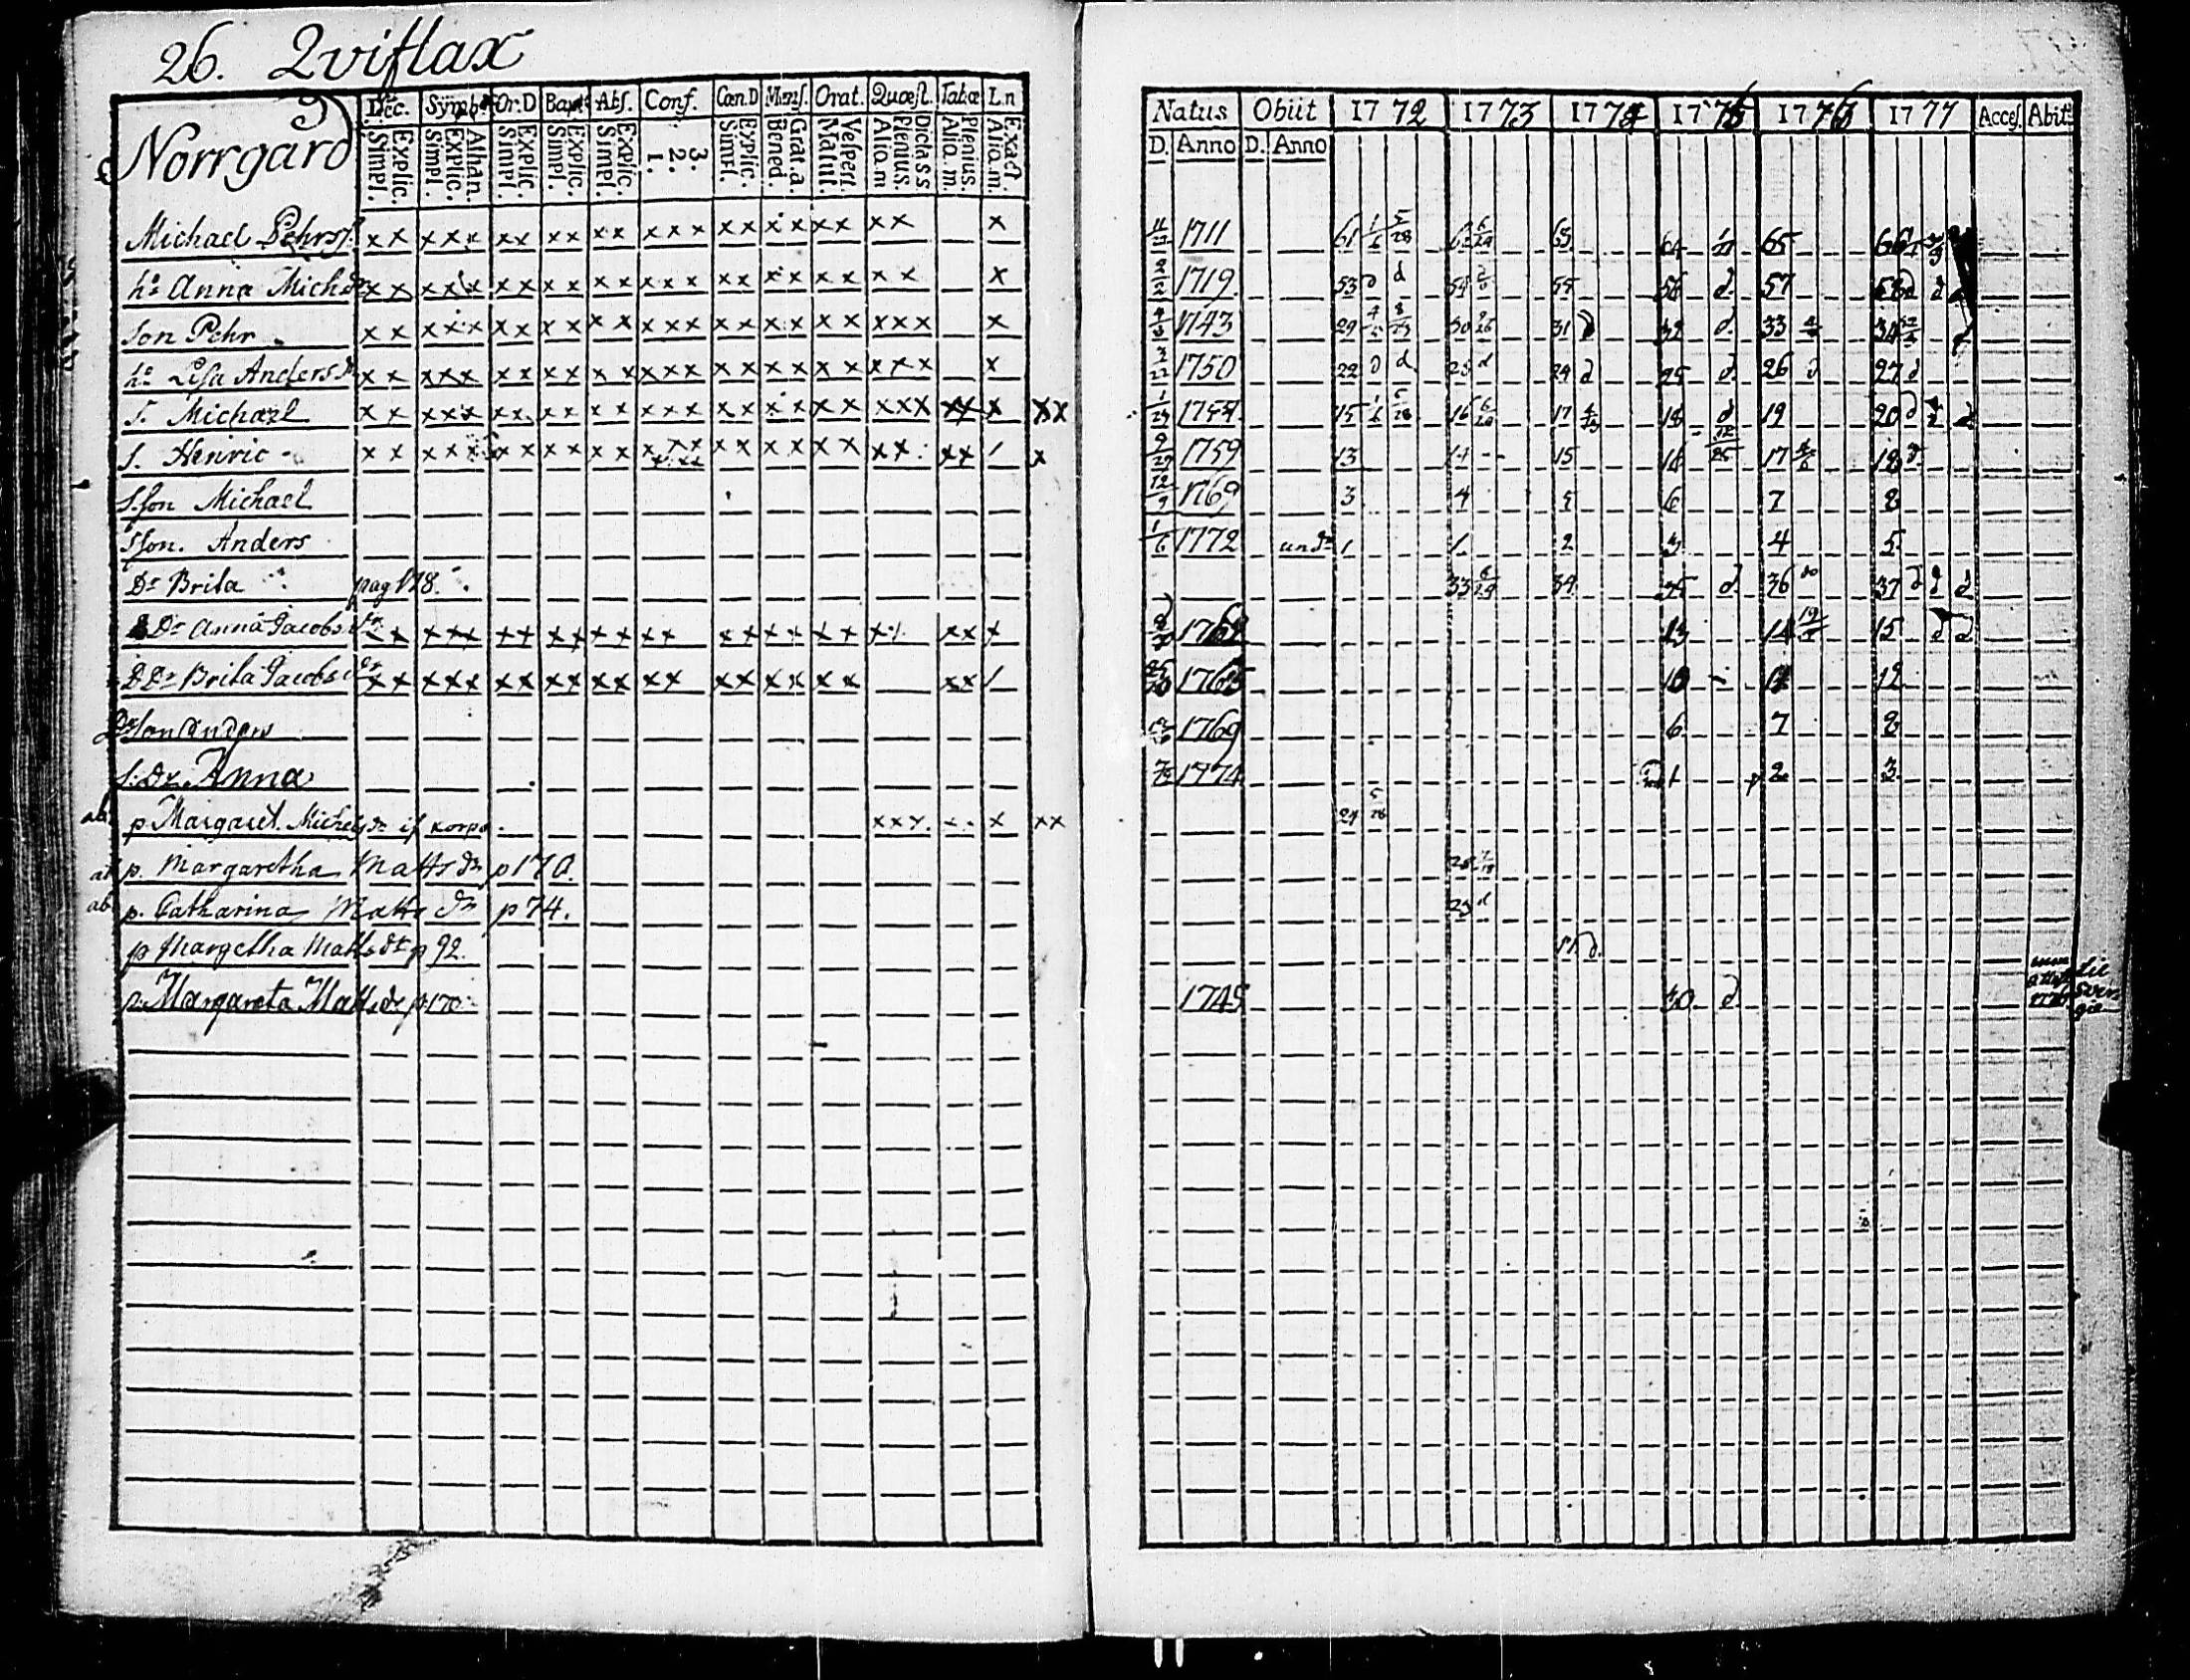 26. Qviflax
Norrgård
Dec. Symb. Or.D Bapt. Abs. Conf. Cœn.D Mens. Orat. Quæst. Tabæ L.n
Simpl. Explic. Simpl. Explic. Athan. Simpl. Explic. Simpl. Explic. Simpl. Explic. 1. 2. 3. Simpl. Explic. Bened. Grat.a Matut. Vespert. Aliq.m Plenius. Dicta SS Aliq.m Plenius. Aliq.m. Exact.
Michael Pehrss. x x x x x x x x x x x x x x x x x x x x x x x
h:s Anna Mich dr x x x x x x x x x x x x x x x x x x x x x x x
Son Pehr x x x x x x x x x x x x x x x x x x x x x x x x
h:s Lisa Anders dr x x x x x x x x x x x x x x x x x x x x x x x x
S. Michael x x x x x x x x x x x x x x x x x x x x x x x x x x x x
S. Henric x x x x x x x x x x x x x x x x x x x x x x x
S. son Michael
S son. Anders
Dr Brita pag 178.
Dr Anna Jacobs dr
D Dr Brita Jacobs dr
Dr Son Anders
S: Dr Anna
ab p. Margaret. Michels dr x x x x x x
ab p. Margaretha Matts dr p 170.
ab p. Catharina Matts dr p 74.
p Margetha Matts dr p 92.
p. Margareta Matts dr p 170
Natus Obiit 1772 1773 1774 1775 1776 1777 Acces. Abit.
D. Anno D. Anno
1711 61 1/6 5/28 62 6/29 63 64 65 66
1719 53 d d 54 55 56 d. 57 58 d d
1743 29 30 31 d 32 d. 33 34
1750 22 d d 23 d 24 d 25 d. 26 d 27 d
15 1/6 5/28 16 6/29 17 18 d 19 20 d
9/29 1759 13 14 15 16 17 18 d
12/9 1769 3 4 5 6 7 8
1/6 1772 1 1 2 3 4 5
33 6/29 34 35 d. 36 do 37 d d d
13 14 15 d d
1765 10 11 12
1769 6 7 8
1774 1 2 3
24 5/28
28
23 d
51 d.
1745 30 d.